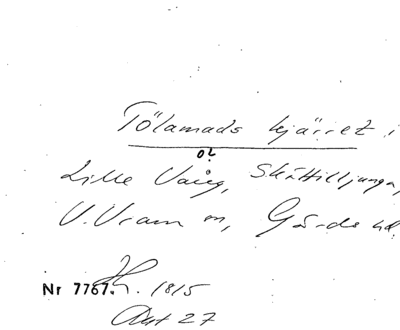 Tölamads kjärret i
ol
Lille Vång, Skättilljunga,
V. Vram sn, Gärds hd.
Nr 7767. H. 1815
Akt 27